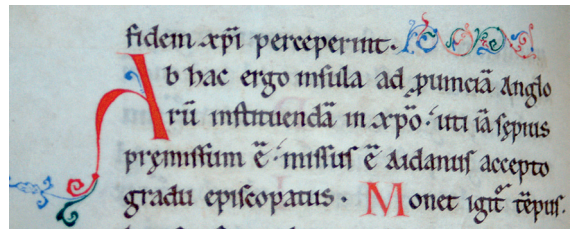 fidem xp̄i perceperint.
Ab hac ergo insula ad ꝓuinciā Anglo
rū instituendā in xp̄o. uti iā sępius
pręmissum ē. missus ē Aidanus accepto
gradu episcopatus. Monet igit᷑ tēpus.